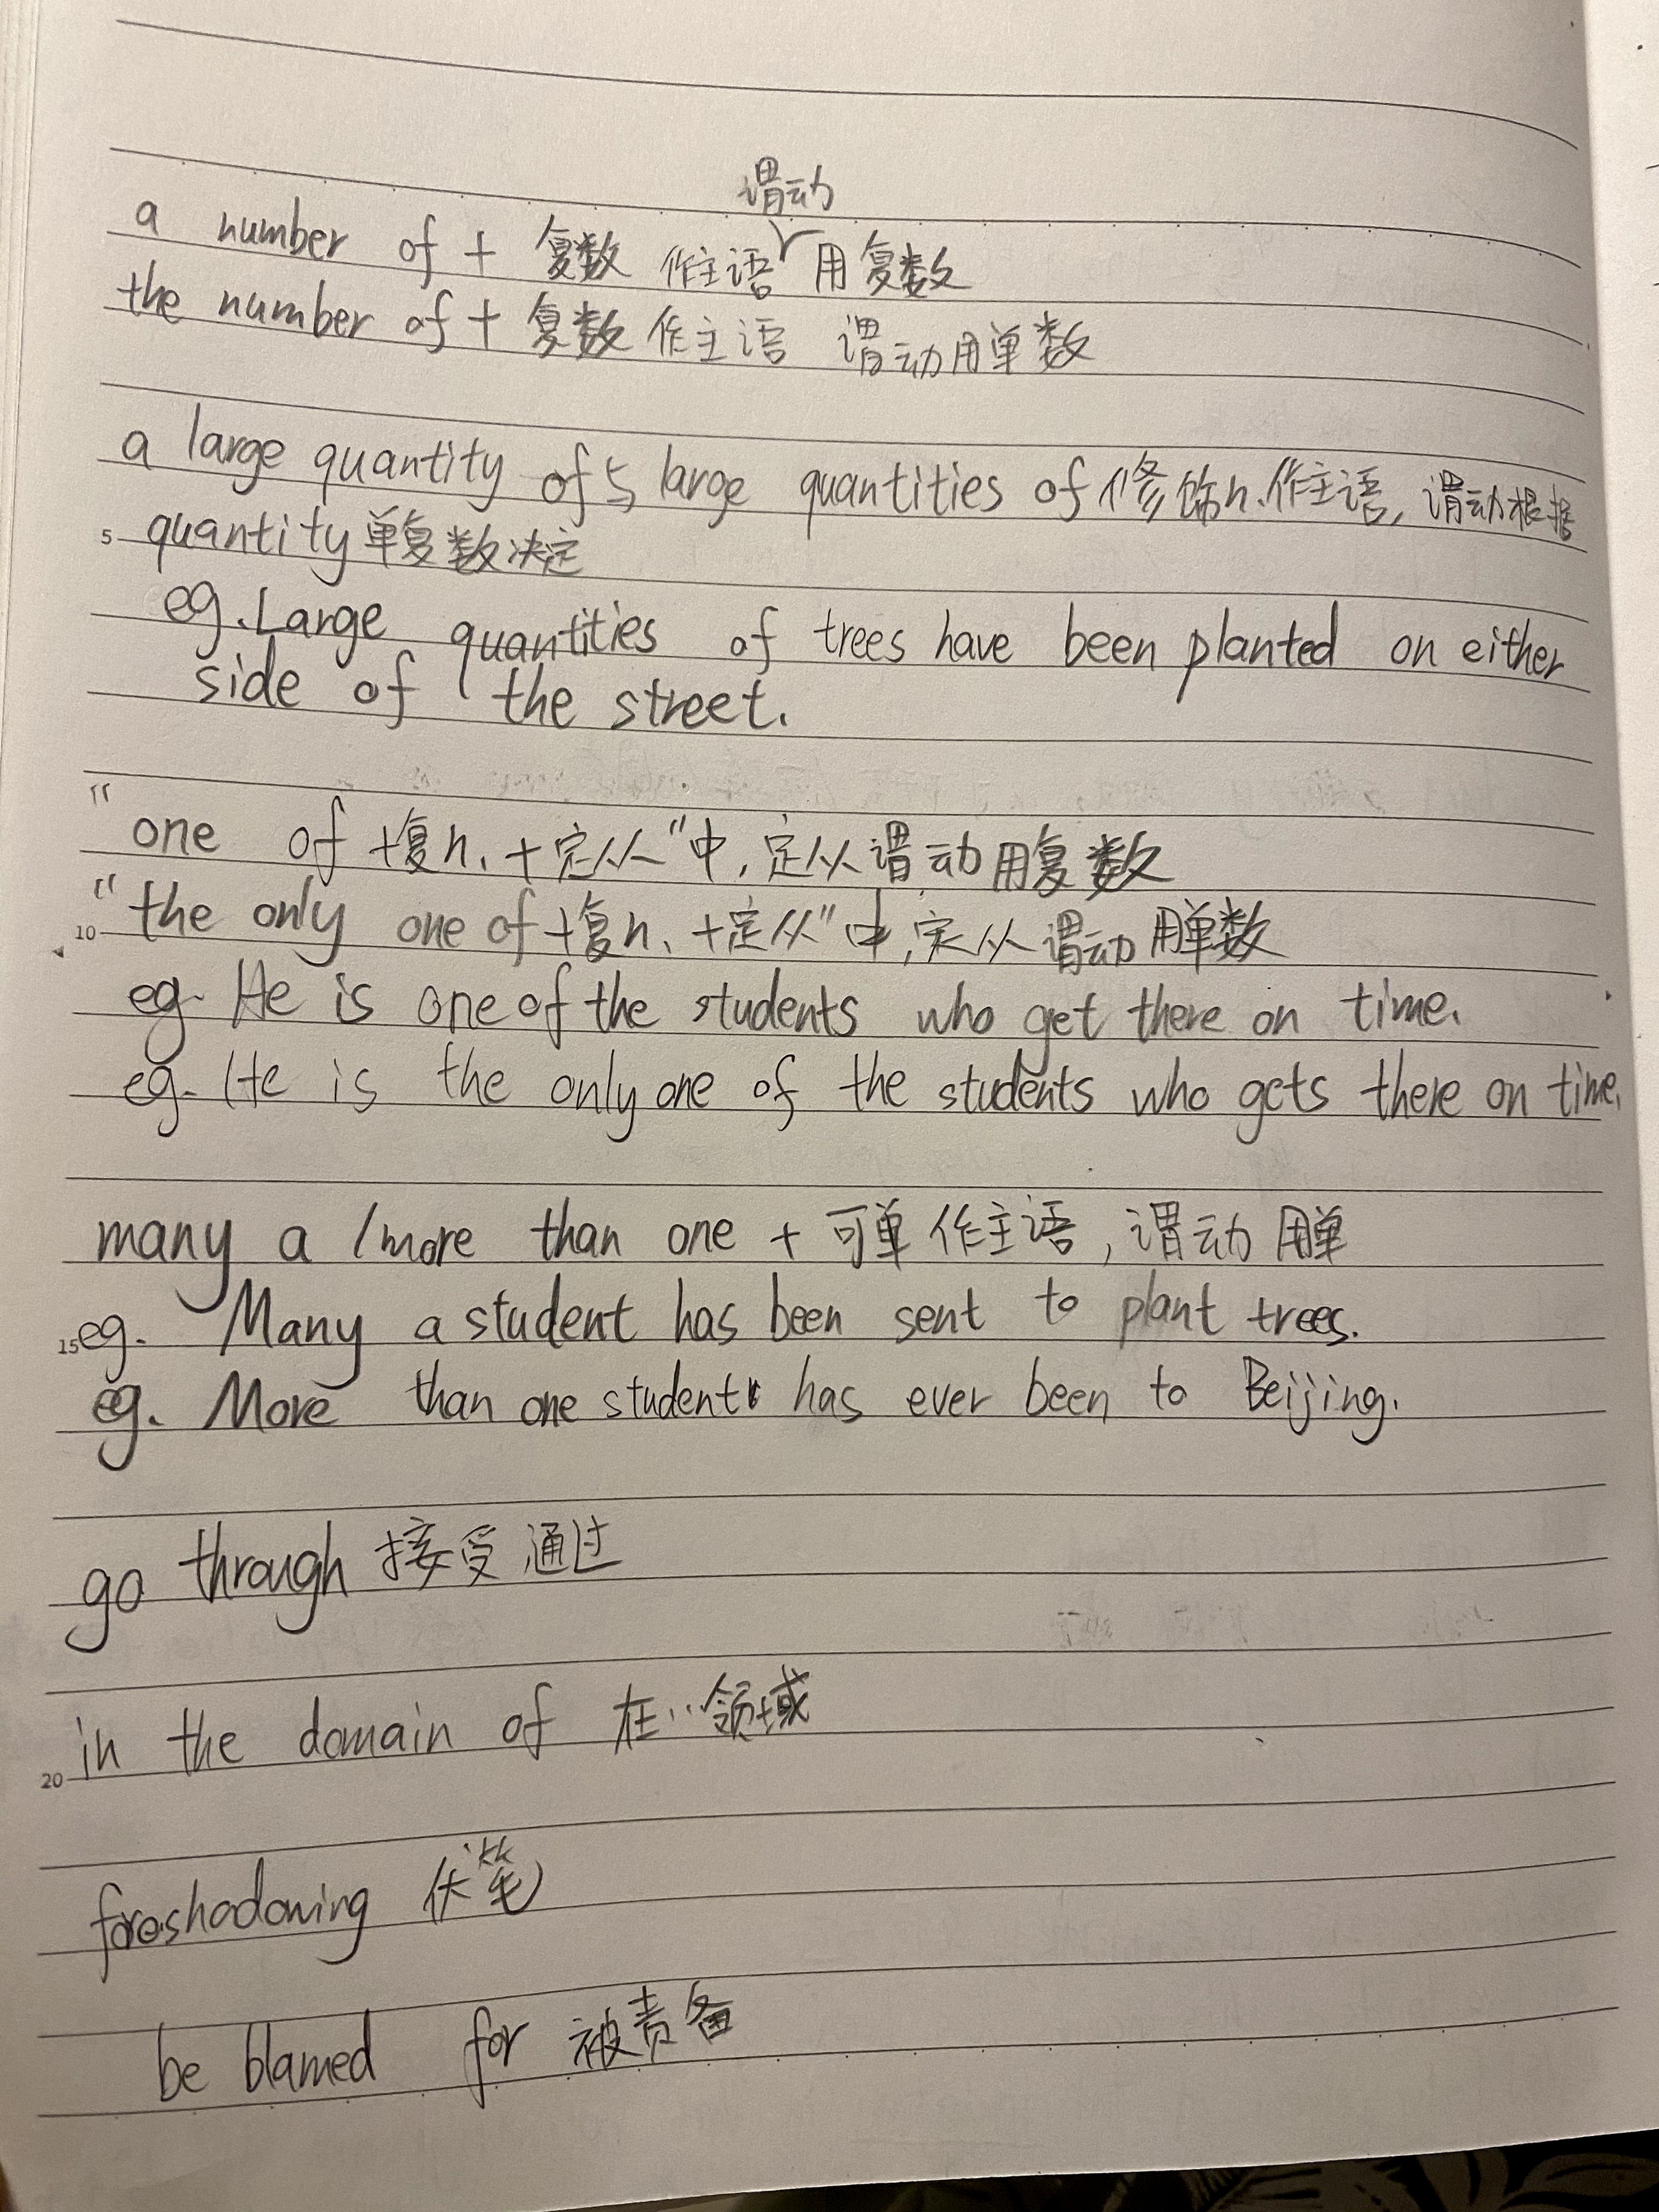 a number of + 复数 作主语 谓动 用复数
the number of + 复数 作主语 谓动用单数
a large quantity of 与 large quantities of 修饰n.作主语, 谓动根据
5 quantity单复数决定
eg. Large quantities of trees have been planted on either
side of the street.
"one of +复n. + 定从"中, 定从谓动用复数
10 "the only one of +复n. +定从"中, 定从谓动用单数
eg. He is one of the students who get there on time.
eg. He is the only one of the students who gets there on time.
many a / more than one + 可单 作主语, 谓动用单
15 eg. Many a student has been sent to plant trees.
eg. More than one student has ever been to Beijing.
go through 接受 通过
20 in the domain of 在…领域
foreshadowing 伏笔
be blamed for 被责备